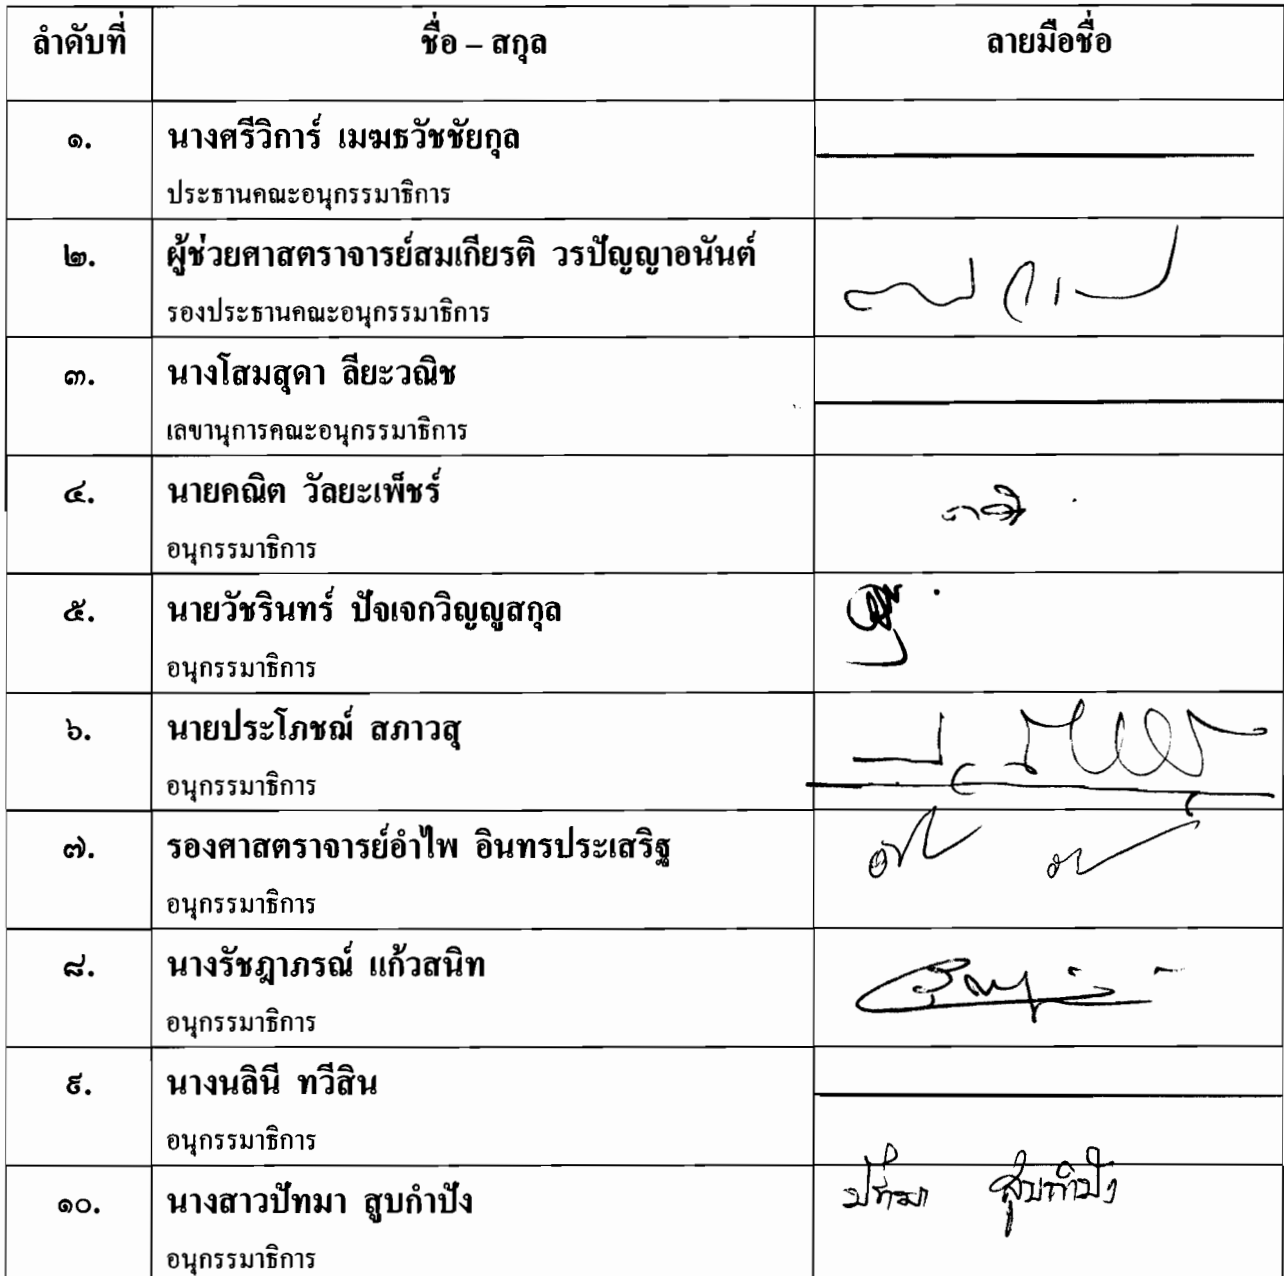 ลำดับที่ ชื่อ – สกุล ลายมือชื่อ
๑. นางศรีวิการ์ เมฆธวัชชัยกุล
ประธานคณะอนุกรรมาธิการ
๒. ผู้ช่วยศาสตราจารย์สมเกียรติ วรปัญญาอนันต์
รองประธานคณะอนุกรรมาธิการ
๓. นางโสมสุดา ลียะวณิช
เลขานุการคณะอนุกรรมาธิการ
๔. นายคณิต วัลยะเพ็ชร์
อนุกรรมาธิการ
๕. นายวัชรินทร์ ปัจเจกวิญญูสกุล
อนุกรรมาธิการ
๖. นายประโภชฌ์ สภาวสุ
อนุกรรมาธิการ
๗. รองศาสตราจารย์อำไพ อินทรประเสริฐ
อนุกรรมาธิการ
๘. นางรัชฎาภรณ์ แก้วสนิท
อนุกรรมาธิการ
๙. นางนลินี ทวีสิน
อนุกรรมาธิการ
๑๐. นางสาวปัทมา สูบกำปัง ปัทมา สูบกำปัง
อนุกรรมาธิการ